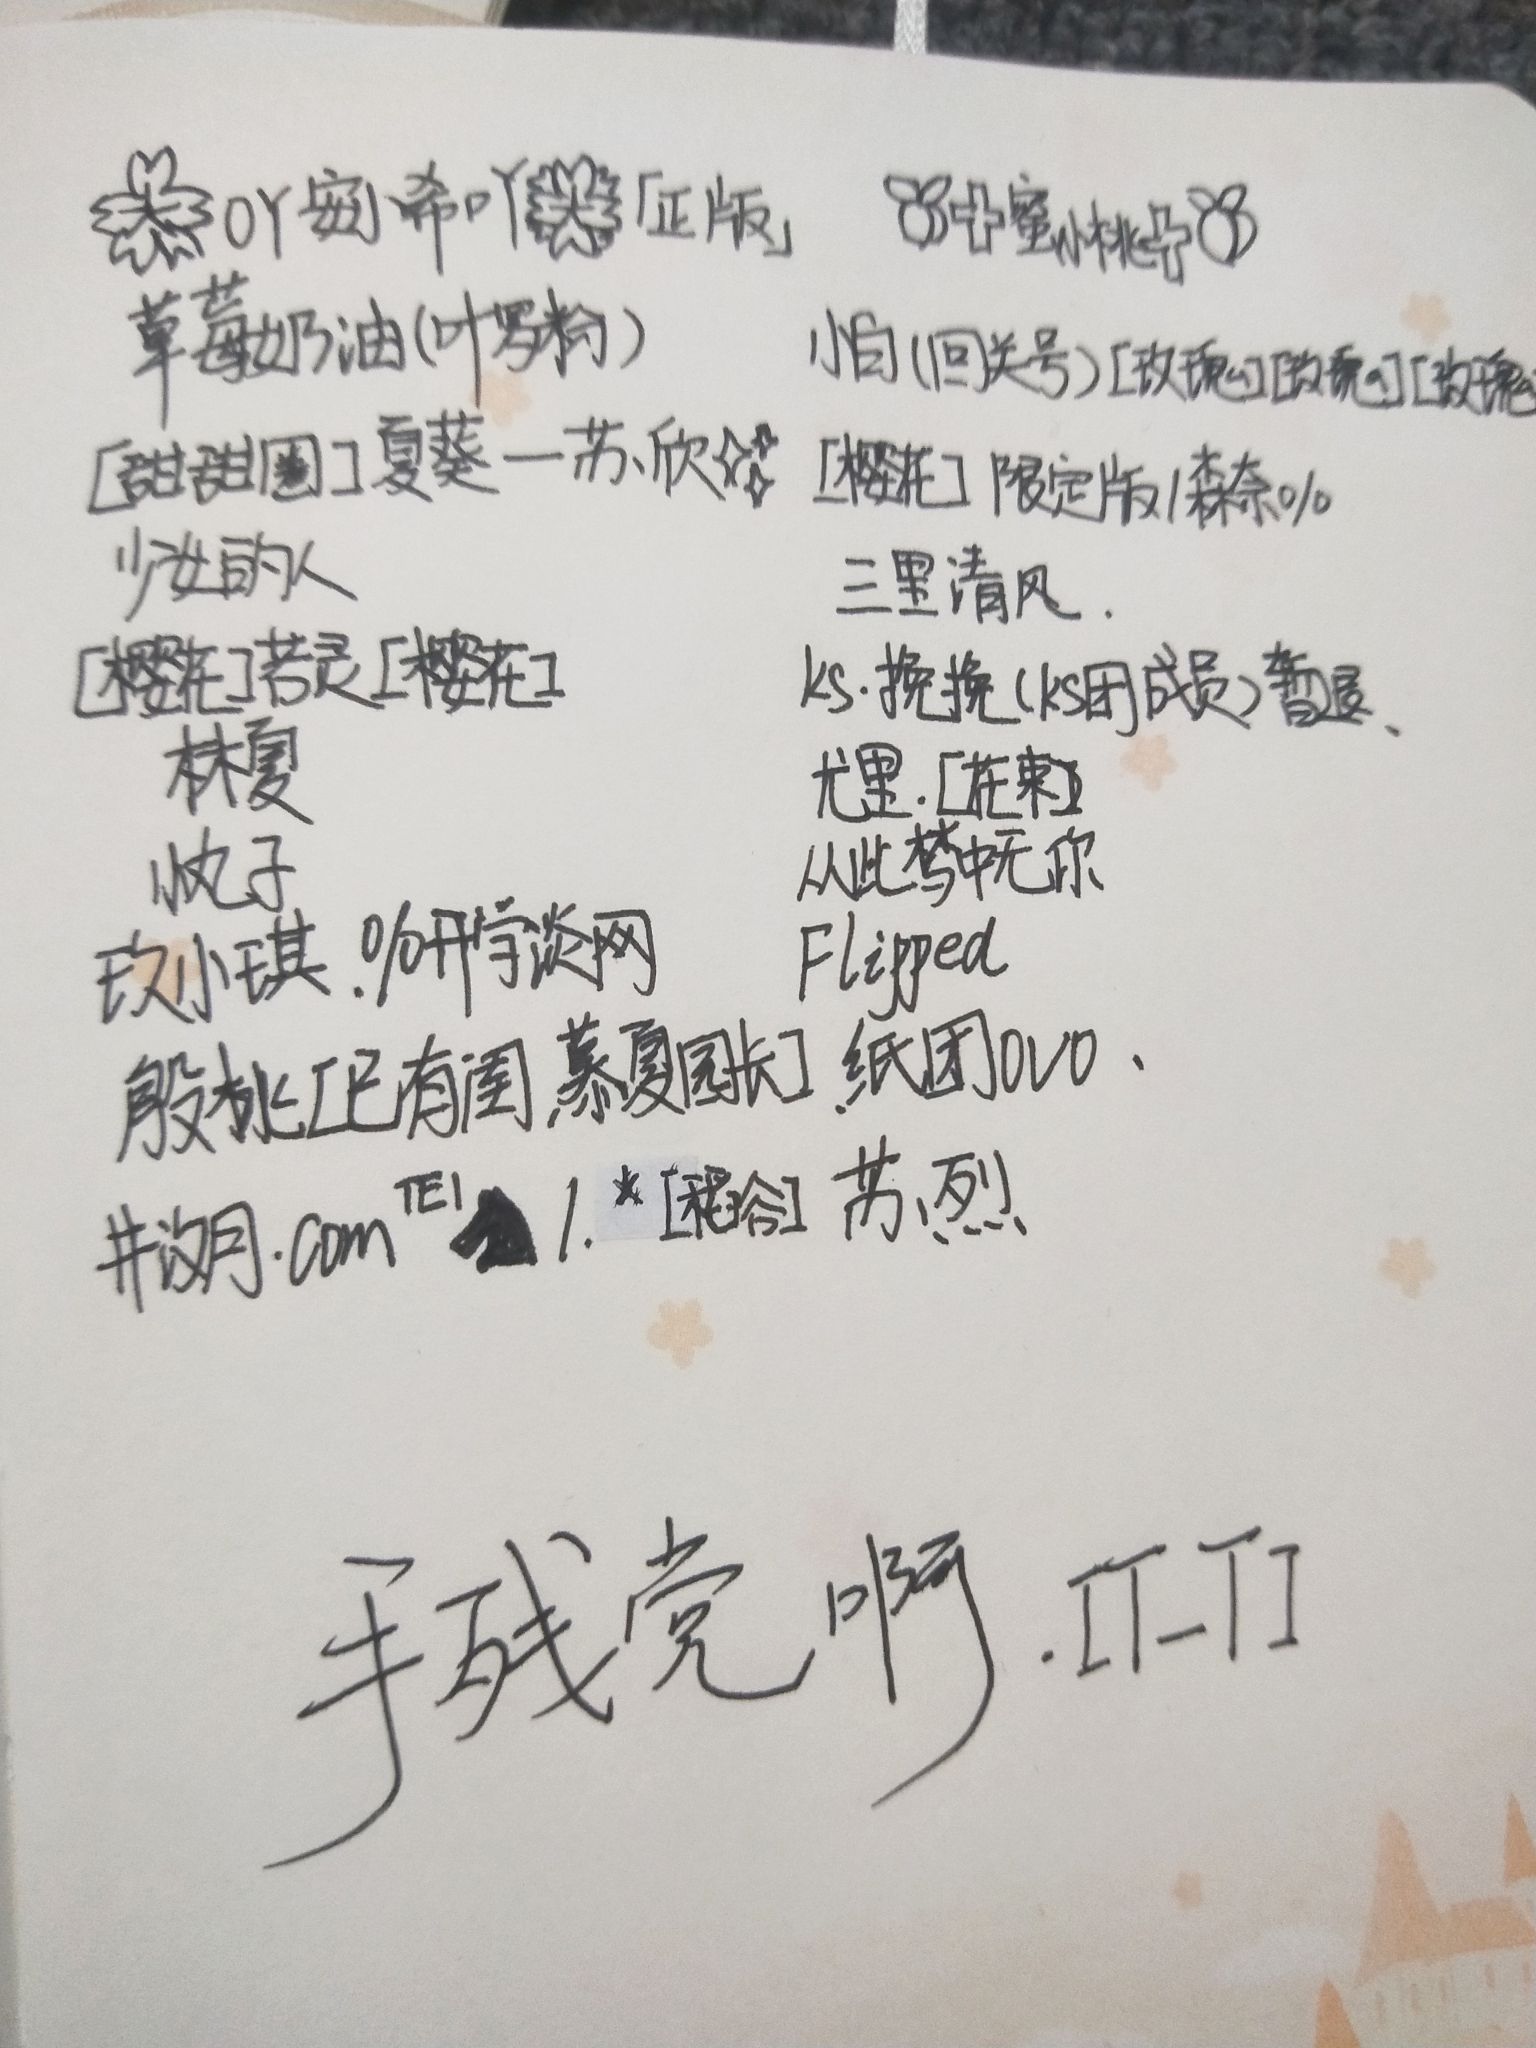 吖安小希吖「正版」 蜜小桃
草莓奶油(叶罗粉) 小白(回关号)[玫瑰][玫瑰][玫瑰
[甜甜圈]夏葵一苏欣 [樱花]限定版/森奈%
少女的人 三里清风.
[樱花]若灵[樱花] ks.挽挽(ks团成员)暂退、
林夏 尤里.[花束]
小丸子 从此梦中无你
玖小琪.%开学淡网 Flipped
殷桃[已有闺,慕夏园长] 纸团OVO、
井汐月.com TEI /.*[稻谷] 苏烈
手残党啊.[T_T]